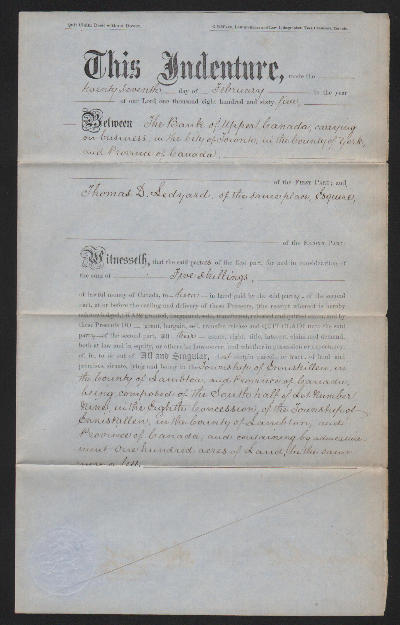 Quit Claim Deed without Dower.
This Indenture, made the
twenty seventh day of February in the year
of our Lord one thousand eight hundred and sixty five,
Between The Bank of Upper Canada, carrying
on business, in the City of Toronto, in the County of York,
and Province of Canada,
of the FIRST PART; and
Thomas D. Ledyard, of the same place, Esquire,
of the SECOND PART:
Witnesseth, that the said parties of the first part, for and in consideration of
the sum of Five Shillings,
of lawful money of Canada, to them in hand paid by the said party of the second
part, at or before the sealing and delivery of these Presents, (the receipt whereof is hereby
acknowledged,) HAVE granted, released and quitted claim, and by
these Presents DO grant, bargain, sell, transfer, release and QUIT CLAIM unto the said
party of the second part, all their estate, right, title, interest, claim and demand,
both at law and in equity, or otherwise howsoever, and whether in possession or expectancy,
of, in, to or out of All and Singular, that certain parcel or tract of land and
premises situate, lying and being in the Township of Enniskillen, in
the County of Lambton, and Province of Canada,
being composed of the South half of Lot Number
Nine, in the Eighth Concession, of the Township of
Enniskillen, in the County of Lambton, and
Province of Canada, and containing by admeasure
ment one hundred acres of Land, be the same
more or less,